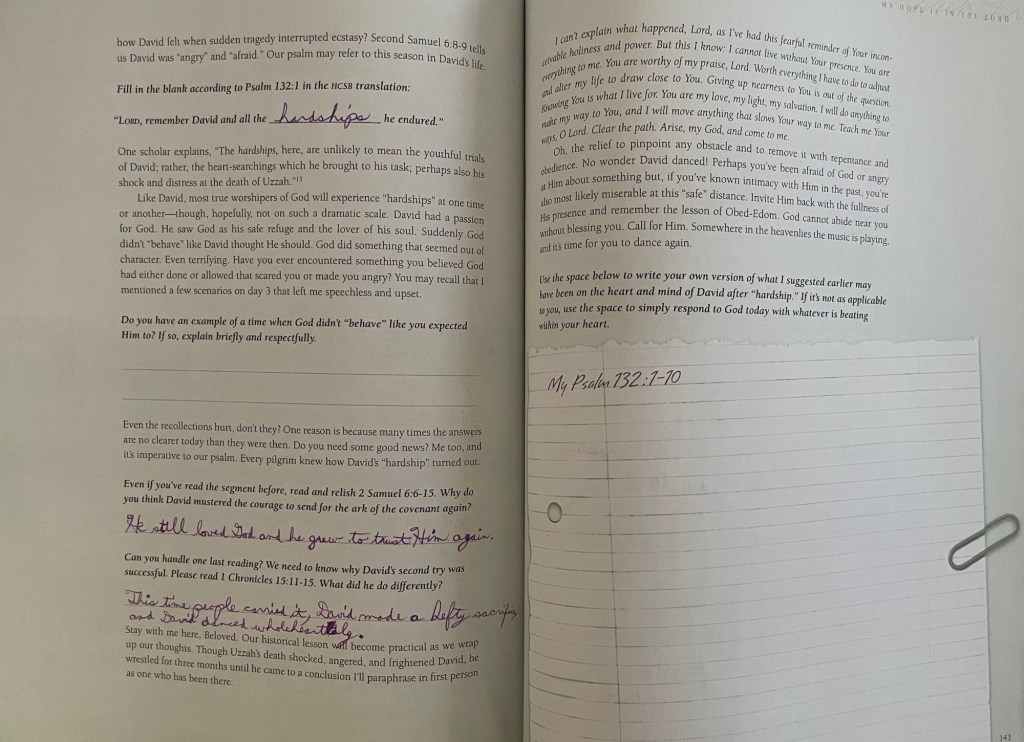 how David felt when sudden tragedy interrupted ecstasy? Second Samuel 6:8-9 tells
us David was "angry" and "afraid." Our psalm may refer to this season in David's life.
Fill in the blank according to Psalm 132:1 in the HCSB translation:
"LORD, remember David and all the hardships he endured."
One scholar explains, "The hardships, here, are unlikely to mean the youthful trials
of David; rather, the heart-searchings which he brought to his task; perhaps also his
shock and distress at the death of Uzzah."15
Like David, most true worshipers of God will experience "hardships" at one time
or another—though, hopefully, not on such a dramatic scale. David had a passion
for God. He saw God as his safe refuge and the lover of his soul. Suddenly God
didn't "behave" like David thought He should. God did something that seemed out of
character. Even terrifying. Have you ever encountered something you believed God
had either done or allowed that scared you or made you angry? You may recall that I
mentioned a few scenarios on day 3 that left me speechless and upset.
Do you have an example of a time when God didn't "behave" like you expected
Him to? If so, explain briefly and respectfully.
Even the recollections hurt, don't they? One reason is because many times the answers
are no clearer today than they were then. Do you need some good news? Me too, and
it's imperative to our psalm. Every pilgrim knew how David's "hardship" turned out.
Even if you've read the segment before, read and relish 2 Samuel 6:6-15. Why do
you think David mustered the courage to send for the ark of the covenant again?
He still loved God and he grew to trust Him again.
Can you handle one last reading? We need to know why David's second try was
successful. Please read 1 Chronicles 15:11-15. What did he do differently?
This time people carried it, David made a hefty sacrifice,
and David danced wholeheartedly.
Stay with me here, Beloved. Our historical lesson will become practical as we wrap
up our thoughts. Though Uzzah's death shocked, angered, and frightened David, he
wrestled for three months until he came to a conclusion I'll paraphrase in first person
as one who has been there:
MY HOPE IS IN THE LORD
I can't explain what happened, Lord, as I've had this fearful reminder of Your incon-
ceivable holiness and power. But this I know: I cannot live without Your presence. You are
everything to me. You are worthy of my praise, Lord. Worth everything I have to do to adjust
and alter my life to draw close to You. Giving up nearness to You is out of the question.
Knowing You is what I live for. You are my love, my light, my salvation. I will do anything to
make my way to You, and I will move anything that slows Your way to me. Teach me Your
ways, O Lord. Clear the path. Arise, my God, and come to me.
Oh, the relief to pinpoint any obstacle and to remove it with repentance and
obedience. No wonder David danced! Perhaps you've been afraid of God or angry
at Him about something but, if you've known intimacy with Him in the past, you're
also most likely miserable at this "safe" distance. Invite Him back with the fullness of
His presence and remember the lesson of Obed-Edom. God cannot abide near you
without blessing you. Call for Him. Somewhere in the heavenlies the music is playing,
and it's time for you to dance again.
Use the space below to write your own version of what I suggested earlier may
have been on the heart and mind of David after "hardship." If it's not as applicable
to you, use the space to simply respond to God today with whatever is beating
within your heart.
My Psalm 132:1-10
143